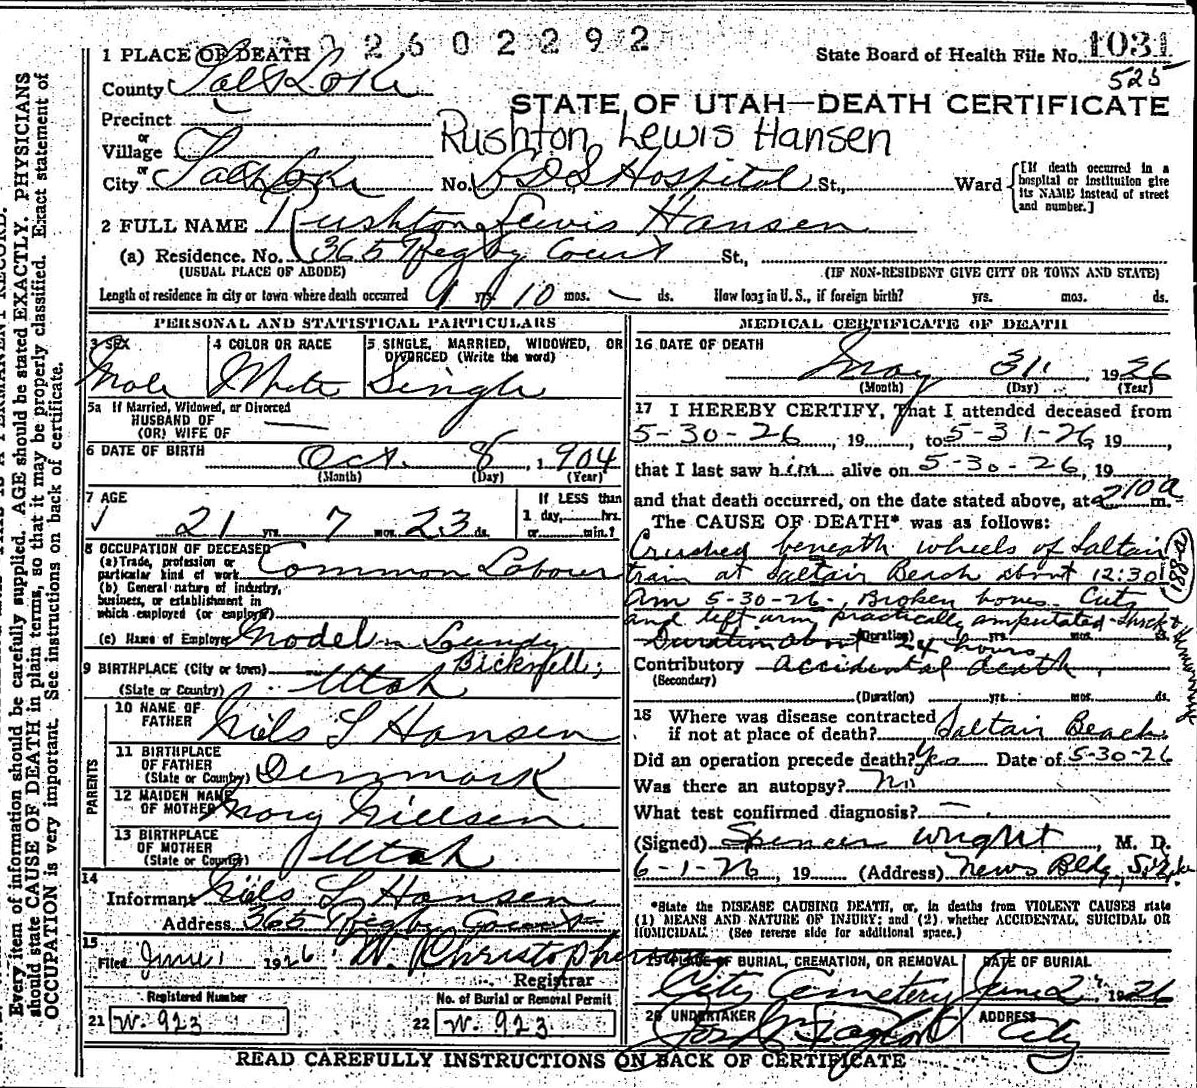 2602292
1 PLACE OF DEATH
State Board of Health File No. 1031
525
County Salt Lake
STATE OF UTAH—DEATH CERTIFICATE
Precinct
or
Village
Rushton Lewis Hansen
or
City Salt Lake No. LDS Hospital St., Ward
[If death occurred in a hospital or institution give its NAME instead of street and number.]
2 FULL NAME Rushton Lewis Hansen
(a) Residence. No. 365 Rigby Court St.,
(USUAL PLACE OF ABODE) (IF NON-RESIDENT GIVE CITY OR TOWN AND STATE)
Length of residence in city or town where death occurred yrs. 10 mos. — ds. How long in U.S., if foreign birth? yrs. mos. ds.
PERSONAL AND STATISTICAL PARTICULARS
3 SEX
Male
4 COLOR OR RACE
White
5 SINGLE, MARRIED, WIDOWED, OR DIVORCED (Write the word)
Single
5a If Married, Widowed, or Divorced
HUSBAND OF
(OR) WIFE OF —
6 DATE OF BIRTH Oct. 8, 1904
(Month) (Day) (Year)
7 AGE
21 yrs. 7 mos. 23 ds.
If LESS than
1 day, hrs.
or min.?
8 OCCUPATION OF DECEASED
(a) Trade, profession or
particular kind of work Common Laborer
(b) General nature of industry,
business, or establishment in
which employed (or employer)
(c) Name of Employer Model Laundry
9 BIRTHPLACE (City or town) Bicknell,
(State or Country) Utah
PARENTS
10 NAME OF
FATHER Niels L Hansen
11 BIRTHPLACE
OF FATHER
(State or Country) Denmark
12 MAIDEN NAME
OF MOTHER Mary Nielsen
13 BIRTHPLACE
OF MOTHER
(State or Country) Utah
14
Informant Niels L Hansen
Address 365 Rigby Court
15
Filed June 1 1926 W. Christopherson
Registrar
Registered Number
21 W. 923
No. of Burial or Removal Permit
22 W. 923
MEDICAL CERTIFICATE OF DEATH
16 DATE OF DEATH
May 31 1926
(Month) (Day) (Year)
17 I HEREBY CERTIFY, That I attended deceased from
5-30-26, 19, to 5-31-26, 19,
that I last saw him alive on 5-30-26, 19
and that death occurred, on the date stated above, at 210a m.
The CAUSE OF DEATH* was as follows:
Crushed beneath wheels of Saltair
train at Saltair Beach about 12:30
am 5-30-26. Broken bones. Cuts
and left arm practically amputated-shock &
(188-a)
Duration about 24 hours
(Duration) yrs. mos. ds.
Contributory accidental death.
(Secondary)
(Duration) yrs. mos. ds.
18 Where was disease contracted
if not at place of death? Saltair Beach
Did an operation precede death? Yes Date of 5-30-26
Was there an autopsy? No
What test confirmed diagnosis? —
(Signed) Spencer Wright, M. D.
6-1-26, 19 (Address) News Bldg, S. Lake
*State the DISEASE CAUSING DEATH, or, in deaths from VIOLENT CAUSES state
(1) MEANS AND NATURE OF INJURY; and (2) whether ACCIDENTAL, SUICIDAL OR
HOMICIDAL. (See reverse side for additional space.)
19 PLACE OF BURIAL, CREMATION, OR REMOVAL
City Cemetery
DATE OF BURIAL
June 2 1926
20 UNDERTAKER
Jos. Taylor
ADDRESS
City
READ CAREFULLY INSTRUCTIONS ON BACK OF CERTIFICATE
PERMANENT RECORD.
Every item of information should be carefully supplied. AGE should be stated EXACTLY. PHYSICIANS
should state CAUSE OF DEATH in plain terms, so that it may be properly classified. Exact statement of
OCCUPATION is very important. See instructions on back of certificate.